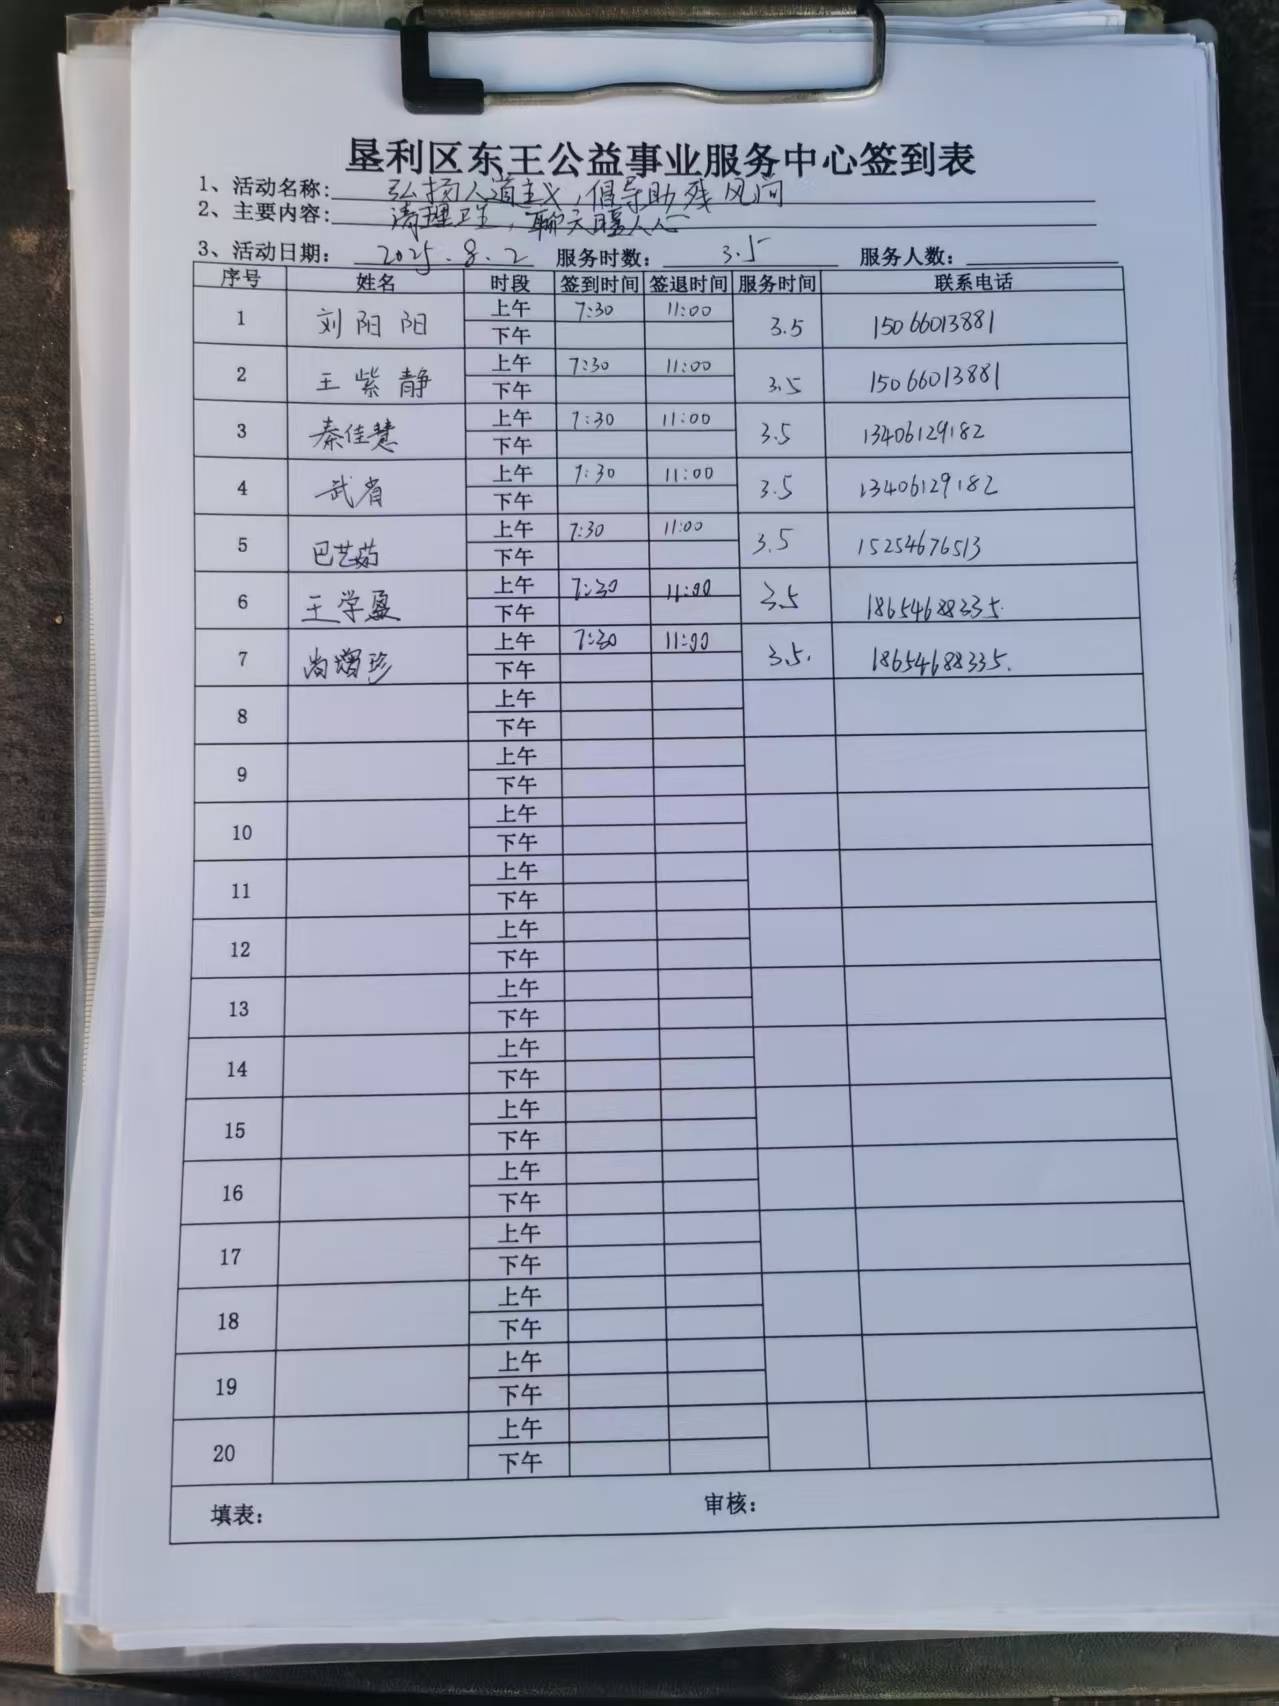 垦利区东王公益事业服务中心签到表
1、活动名称: 弘扬人道主义,倡导助残风尚
2、主要内容: 清理卫生,聊天暖人心
3、活动日期: 2025.8.2 服务时数: 3.5 服务人数:
序号 姓名 时段 签到时间 签退时间 服务时间 联系电话
1 刘阳阳 上午 7:30 11:00 3.5 15066013881
下午
2 王紫静 上午 7:30 11:00 3.5 15066013881
下午
3 秦佳慧 上午 7:30 11:00 3.5 13406129182
下午
4 武省 上午 7:30 11:00 3.5 13406129182
下午
5 巴艺茹 上午 7:30 11:00 3.5 15254676513
下午
6 王学盈 上午 7:30 11:00 3.5 18654688335.
下午
7 尚增珍 上午 7:30 11:00 3.5. 18654688335.
下午
8 上午
下午
9 上午
下午
10 上午
下午
11 上午
下午
12 上午
下午
13 上午
下午
14 上午
下午
15 上午
下午
16 上午
下午
17 上午
下午
18 上午
下午
19 上午
下午
20 上午
下午
填表: 审核: